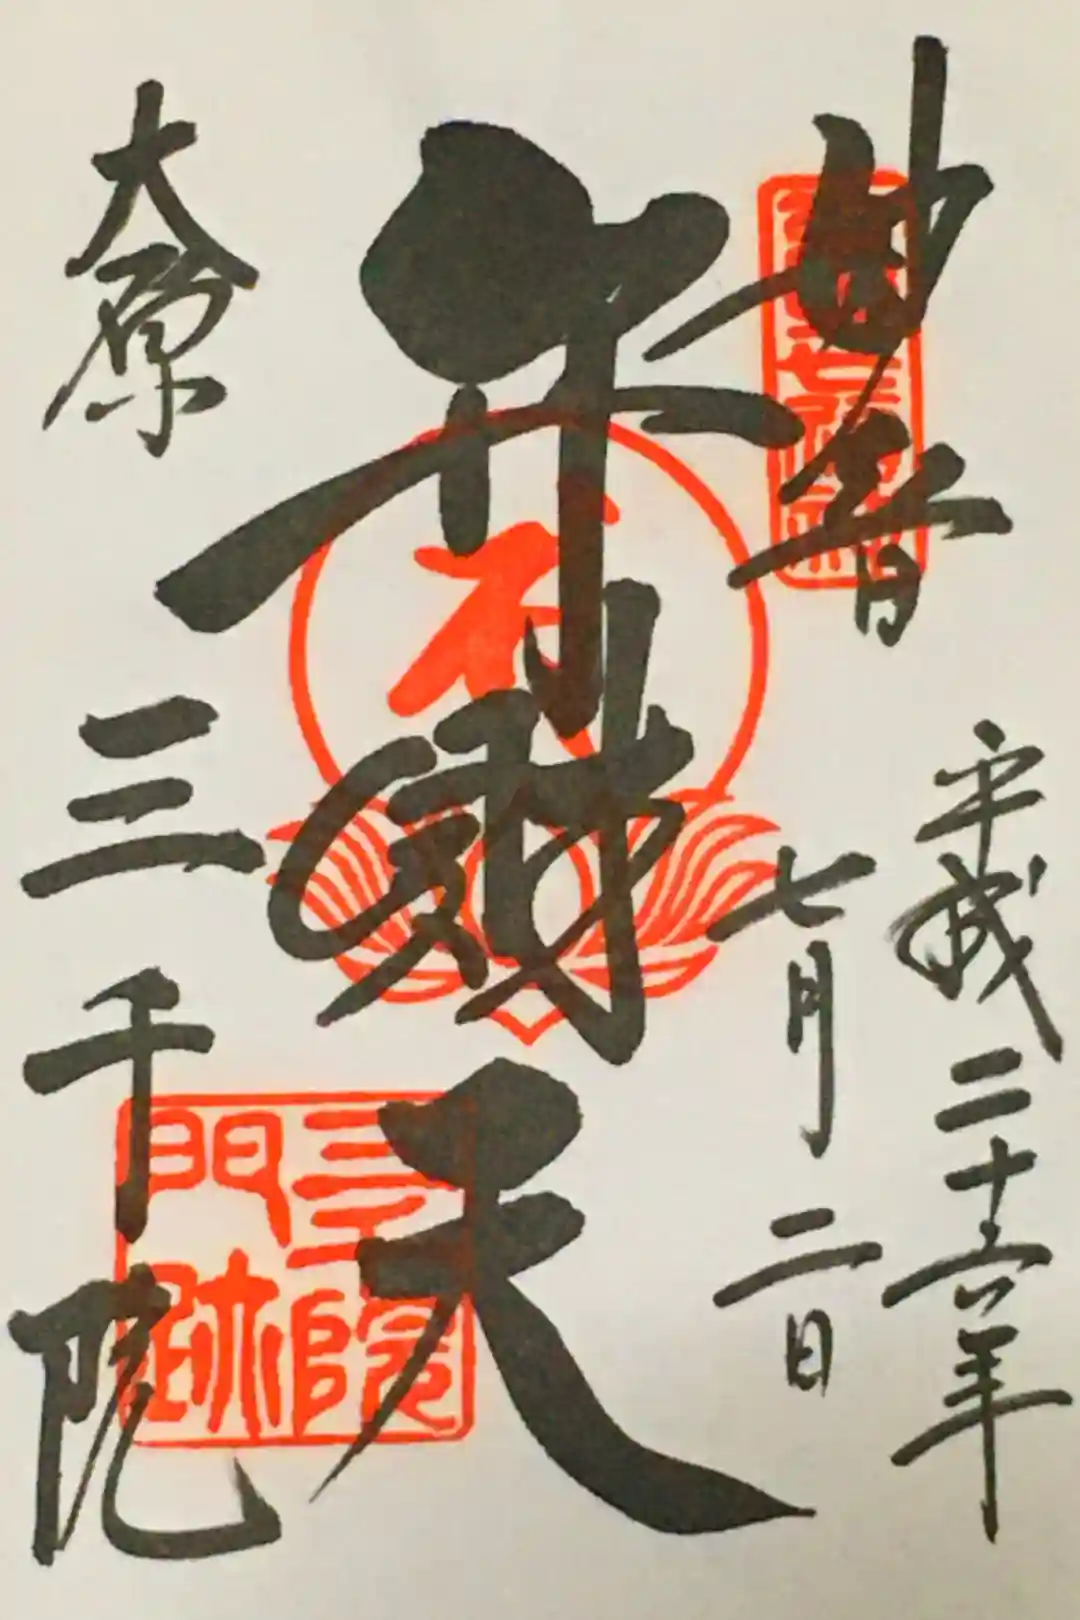 妙音
平成二十六年
七月二日
弁財天
大原
三千院
三千院
門跡